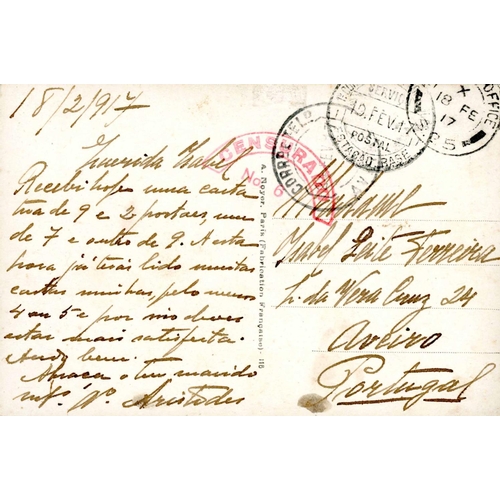 18/2/917
Querida Isabel
Recebi hoje uma carta
tua de 9 e 2 postaes, um
de 7 e outro de 9. A esta
hora já terás lido muitas
cartas minhas, pelo menos
4 ou 5 e por isso deves
estar mais satisfeita.
Ando bem.
Abraça o teu marido
mtº. Aº Aristides
CENSURA
No. 6
CORREIO
POSTAL
19.FEV.17
OFFICE
18 FE
17
S 5
A. Noyer, Paris (Fabrication Française) 115
Madame
Isabel Leite Ferreira
L. da Vera Cruz 24
Aveiro
Portugal